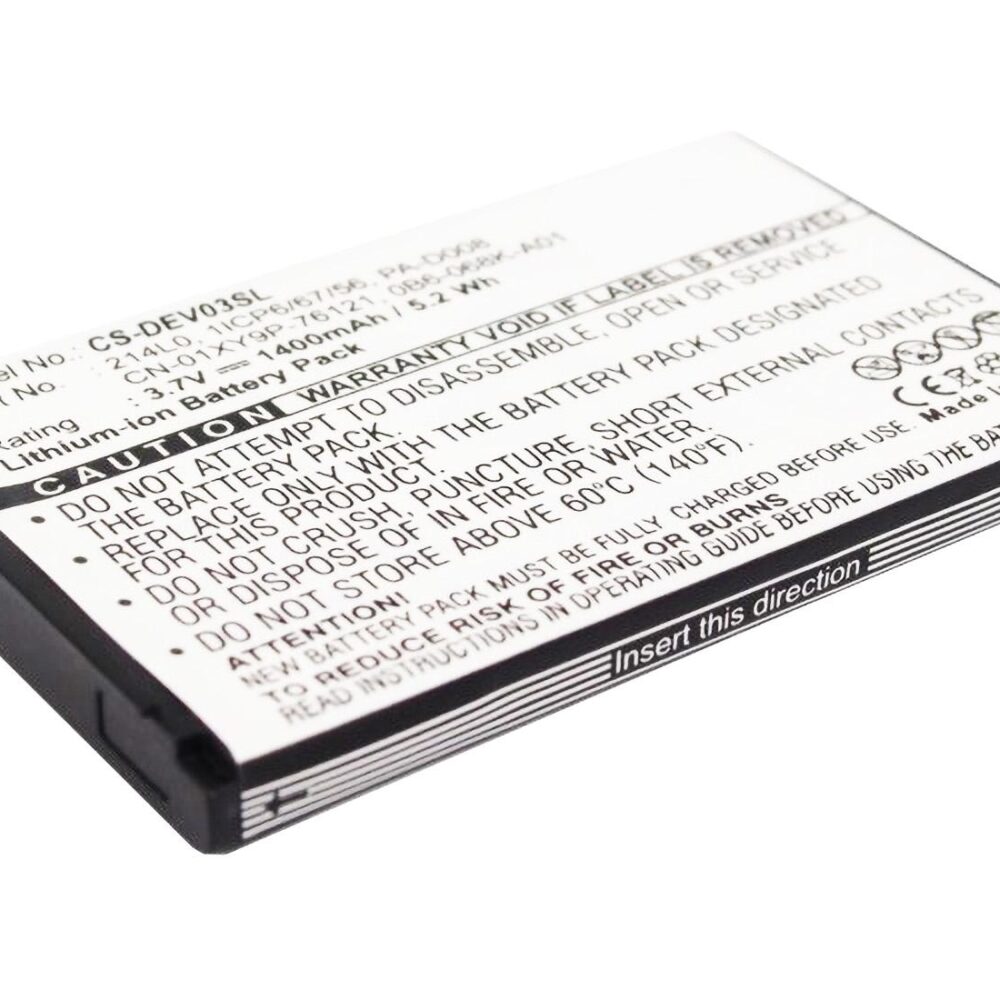 el No.: CS-DEV03SL
/ No. : 214L0, 1ICP6/67/56, PA-D008
CN-01XY9P-76121, 0B6-068K-A01
Rating : 3.7V 1400mAh / 5.2 Wh
Lithium-ion Battery Pack
Made
CAUTION WARRANTY VOID IF LABEL IS REMOVED
• DO NOT ATTEMPT TO DISASSEMBLE, OPEN OR
THE BATTERY PACK.
• REPLACE ONLY WITH THE BATTERY PACK DESIGNED
FOR THIS PRODUCT.
• DO NOT CRUSH, PUNCTURE, SHORT CIRCUIT,
OR DISPOSE OF IN FIRE OR WATER.
• DO NOT STORE ABOVE 60°C (140°F).
ATTENTION!
NEW BATTERY PACK MUST BE FULLY CHARGED BEFORE USE.
TO REDUCE RISK OF FIRE OR BURNS
READ INSTRUCTIONS OPERATING GUIDE BEFORE USING THE
Insert this direction